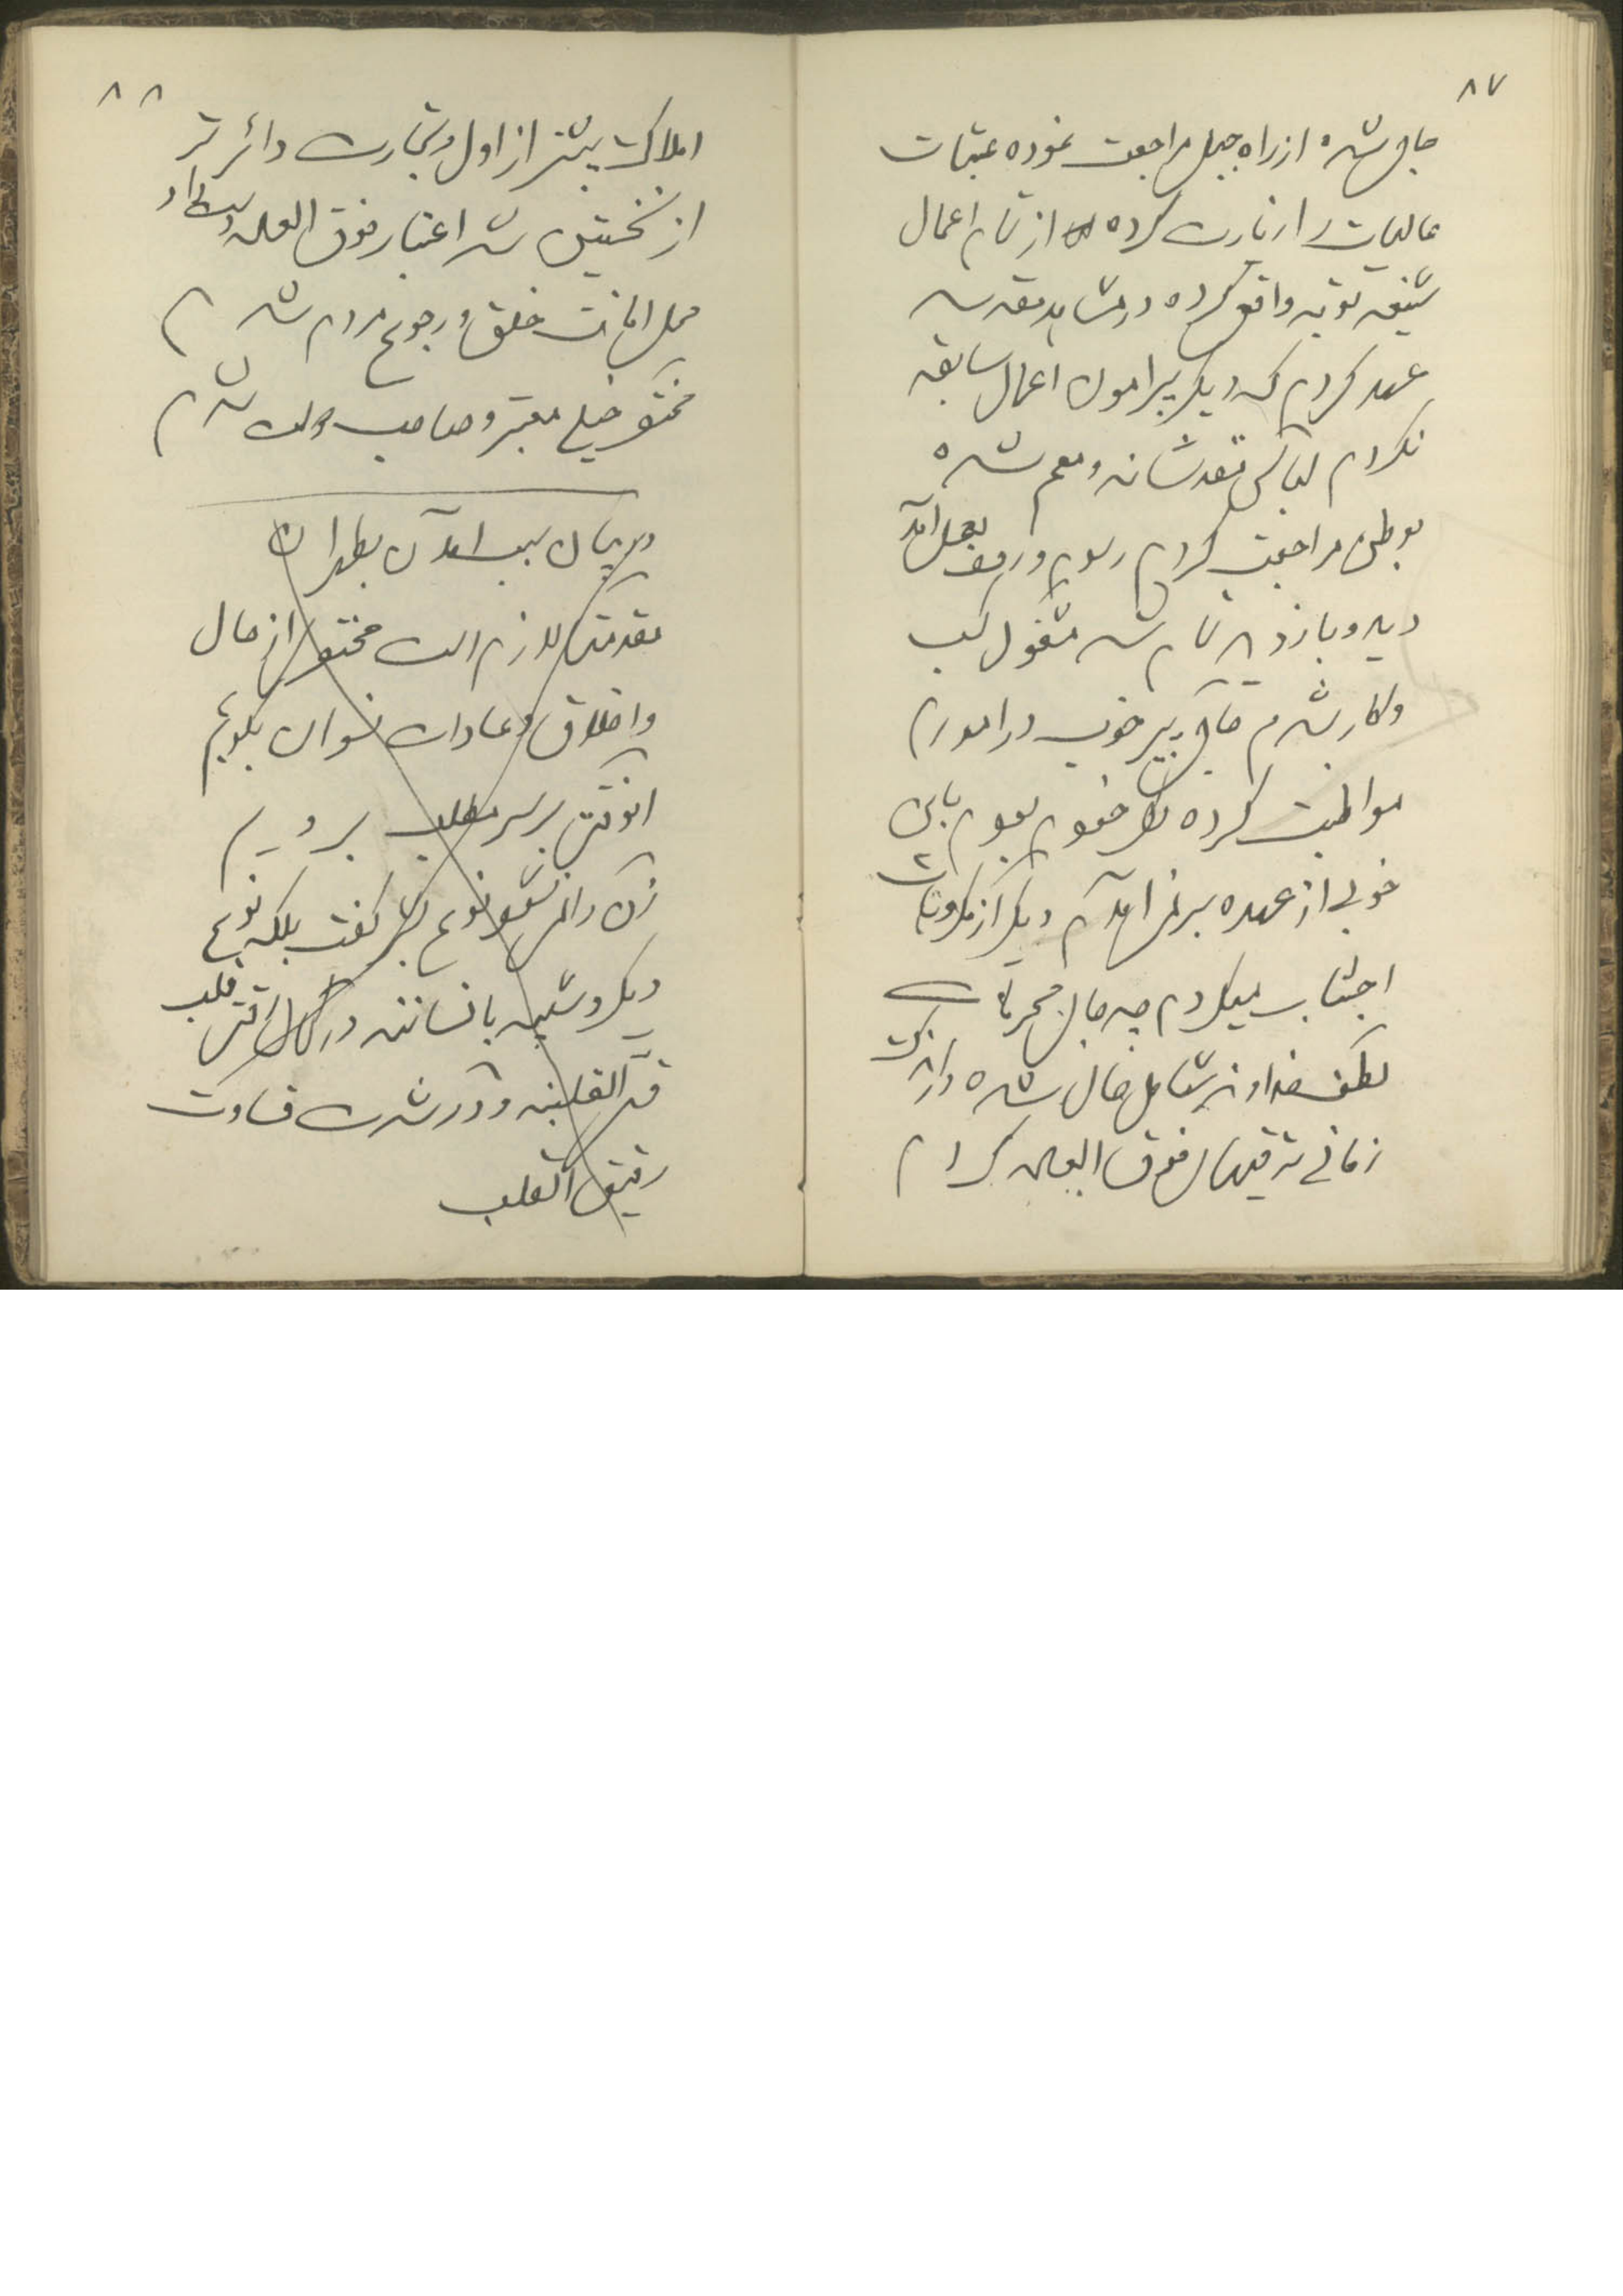 ۸۷
حاجی شده از راه جبل مراجعت نموده عتبات
عالیات را زیارت کرده از تمام اعمال
شنیعه توبه واقعی کرده در مشاهد مقدسه
عهد کردم که دیگر پیرامون اعمال سابقه
نگردم لباس مقدسانه و معمم شده
بوطن مراجعت کردم رسوم ورود بعمل آمد
دید و بازدید تمام شد مشغول کسب
و کار شدم حاجی پیر خوب در امورم
مواظبت کرده بود خودم هم باین
خوبی از عهده برنمی آمدم دیگر از مکروهات
اجتناب میکردم چه جای محرمات
لطف خداوند شامل حال شده در اندک
زمانی ترقیهای فوق العاده کردم
۸۸
املاک بیشتر از اول و تجارت دائرتر
از نخستین شد اعتبار فوق العاده
محل امانت خلق و رجوع مردم شدم
مختصر خیلی معتبر و صاحب دولت شدم
در بیان سبب آمدن بطهران
مقدمتا لازم است مختصر از حال
و اخلاق و عادات نسوان بگویم
آنوقت بر سر مطلب برویم
زن را نمیشود نوع بشر گفت بلکه نوعی
دیگر و شبیه بانسانند در کمال رقت قلب
قسی القلبند و در شدت قساوت
رقیق القلب